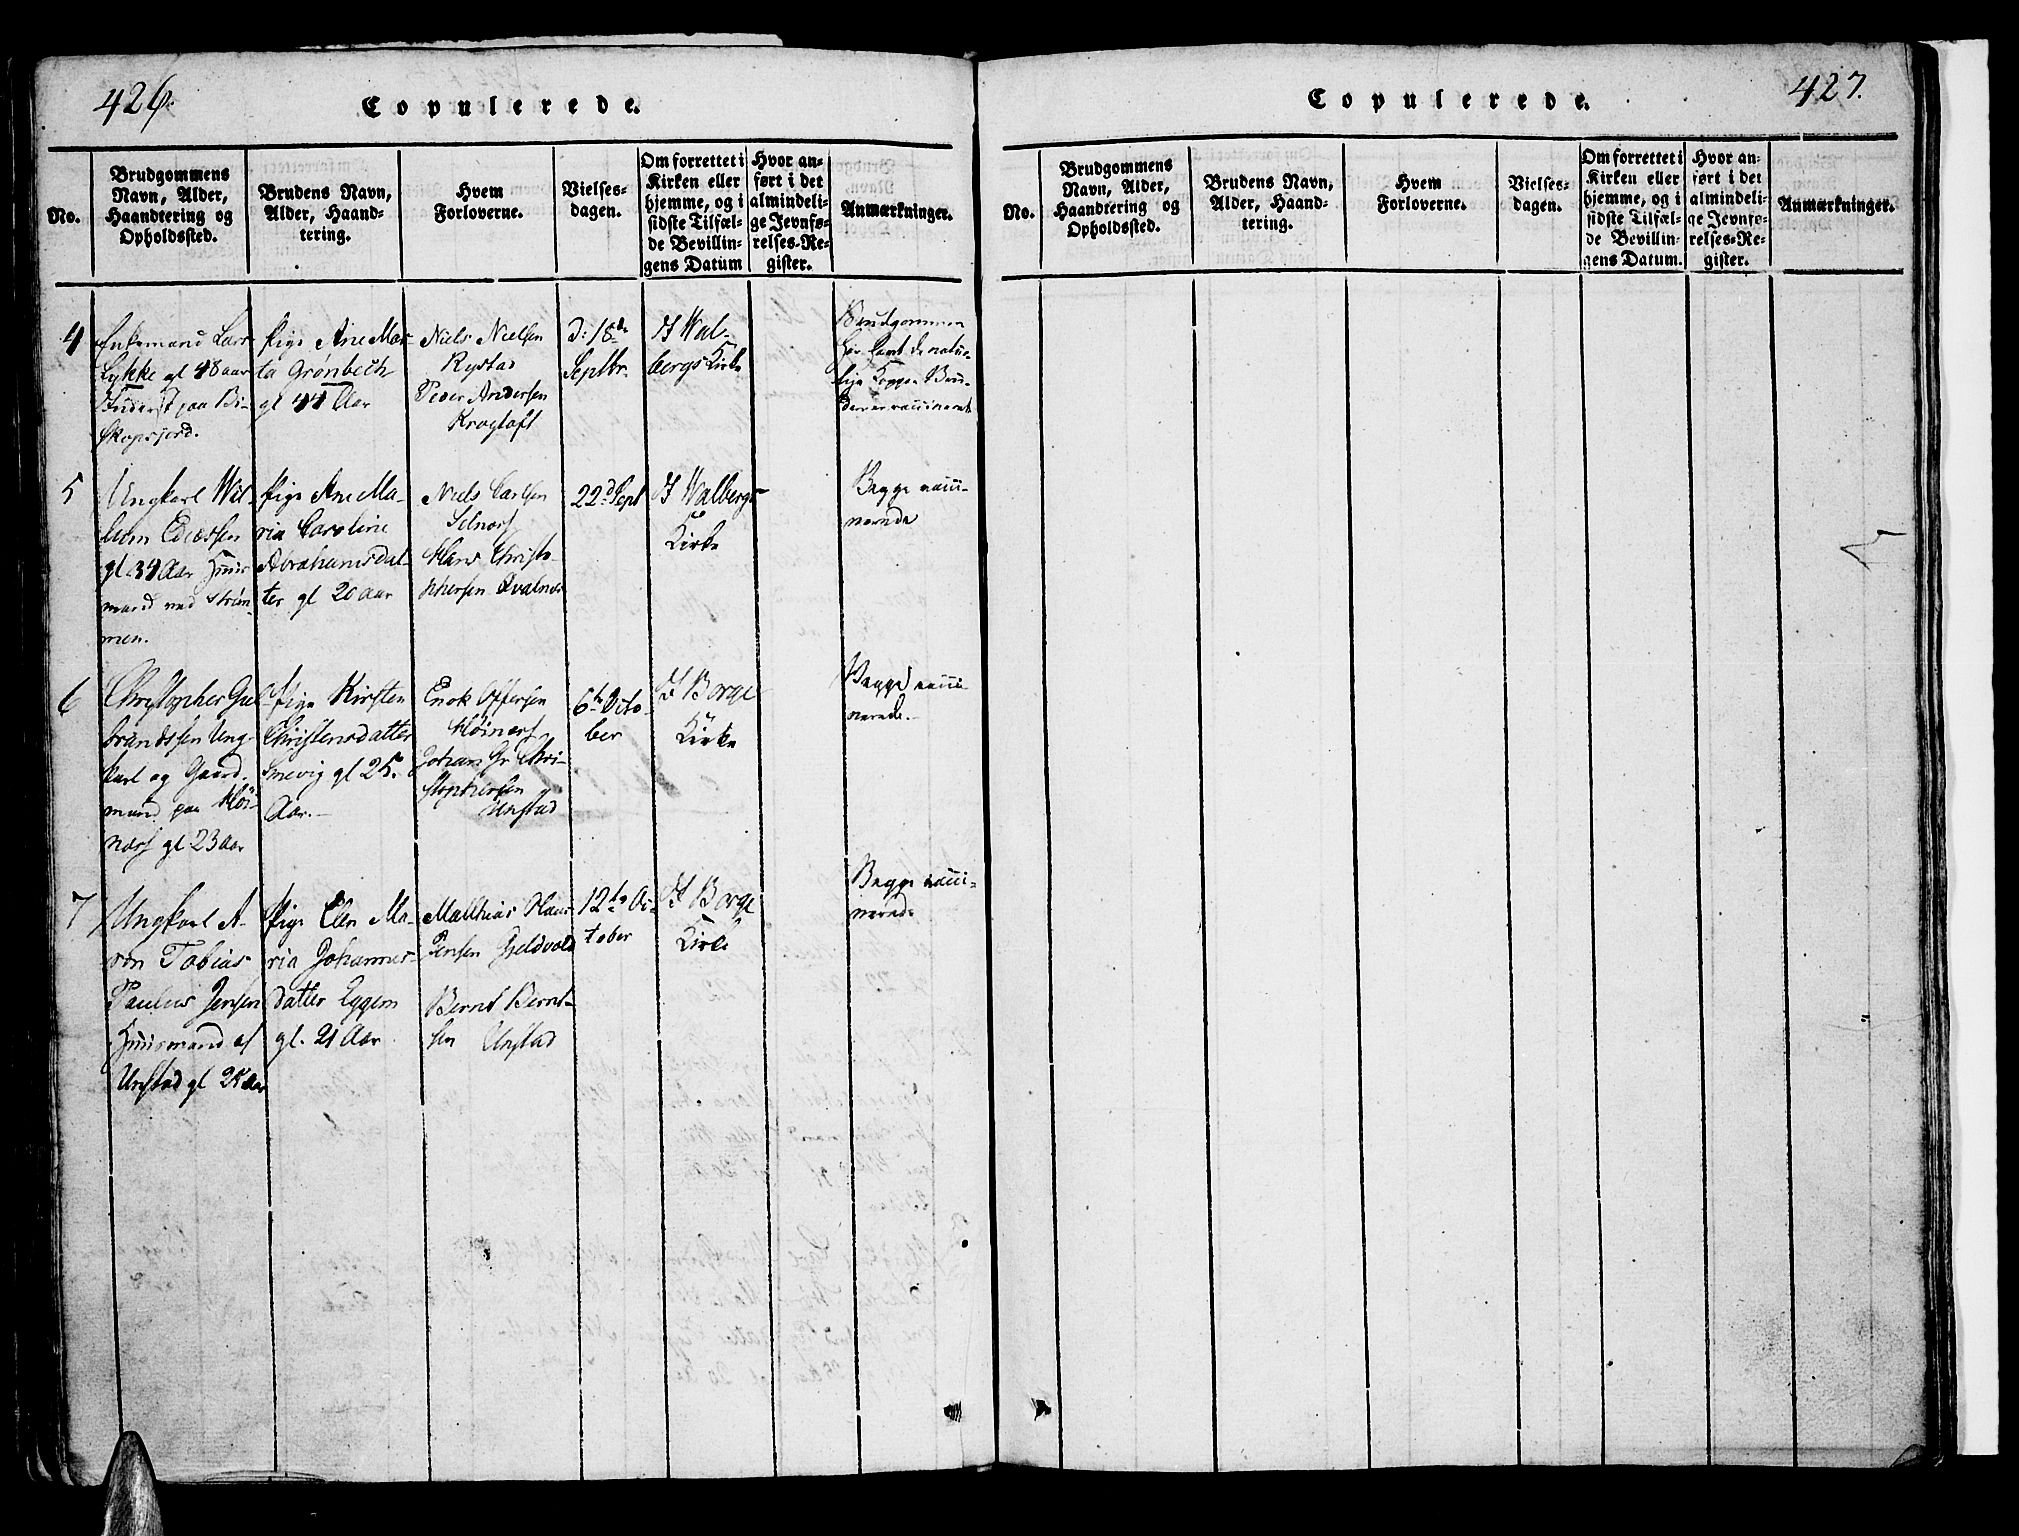 426.
Copulerede.
No.
Brudgommens
Navn, Alder,
Haandtering og
Opholdssted.
Brudens Navn,
Alder, Haand-
tering.
Hvem
Forloverne.
Vielses-
dagen.
Om forrettet i
Kirken eller
hjemme, og i
sidste Tilfæl-
de Bevillin-
gens Datum
Hvor an-
ført i det
almindeli-
ge Jevnfø-
relses-Re-
gister.
Anmærkninger.
4
Enkemand Lars
Lykke gl 48 aar
Inderst paa Bi-
skopsjord.
Pige Ane Mar-
ta Grønbech
gl 44 Aar
Niels Nielsen
Rystad
Peder Andersen
Krogtoft
d: 18de
Septbr.
I Wal-
bergs Kirke
Brudgommen
har havt de natur-
lige Kopper Bru-
den er vaccineret
5
Ungkarl Wil-
lum
gl. 34 Aar Huus
mand ved Strøm-
men.
Pige Ane Ma-
ria Caroline
Abrahamsdat-
ter gl 20 aar
Niels Carlsen
Hans Christo-
phersen Qvalnes
22d Sept
I Walbergs
Kirke
Begge vacci-
nerede
6
Christopher Gul-
brandssen Ung-
karl og Gaard-
mand paa Høi-
næs gl 23 aar
Pige Kirsten
Christensdatter
Smevig gl 25
Aar.
Enok Offersen
Høinæs
Johan Gr Chri-
stophersen
Unstad
6te Octo-
ber
I Borge
Kirke
Begge vacci-
nerede.
7
Ungkarl A-
ron Tobias
Paulus Jensen
Huusmand af
Unstad gl 24 aar
Pige Elen Ma-
ria Johannes-
datter Eggem
gl. 21 Aar
Matthias Hans
Jensen Gjeldvold
Bernt Bernt-
sen Unstad
12te Oc-
tober
I Borge
Kirke
Begge vacci-
nerede
427.
Copulerede.
No.
Brudgommens
Navn, Alder,
Haandtering og
Opholdssted.
Brudens Navn,
Alder, Haand-
tering.
Hvem
Forloverne.
Vielses-
dagen.
Om forrettet i
Kirken eller
hjemme, og i
sidste Tilfæl-
de Bevillin-
gens Datum.
Hvor an-
ført i det
almindeli-
ge Jevnfø-
relses-Re-
gister.
Anmærkninger.